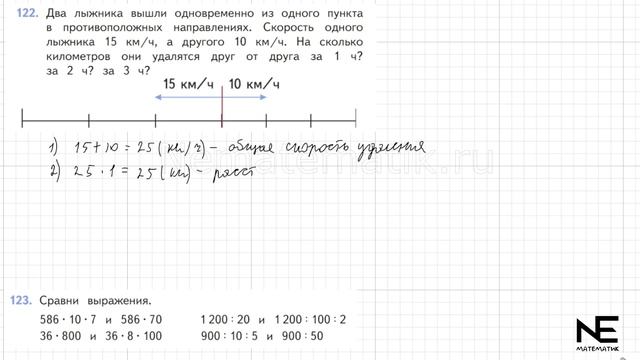 122. Два лыжника вышли одновременно из одного пункта
в противоположных направлениях. Скорость одного
лыжника 15 км/ч, а другого 10 км/ч. На сколько
километров они удалятся друг от друга за 1 ч?
за 2 ч? за 3 ч?
15 км/ч 10 км/ч
1) 15+10=25(км/ч) – общая скорость удаления
2) 25·1=25(км) – расст
123. Сравни выражения.
586·10·7 и 586·70 1 200:20 и 1 200:100:2
36·800 и 36·8·100 900:10:5 и 900:50
NE
МАТЕМАТИК